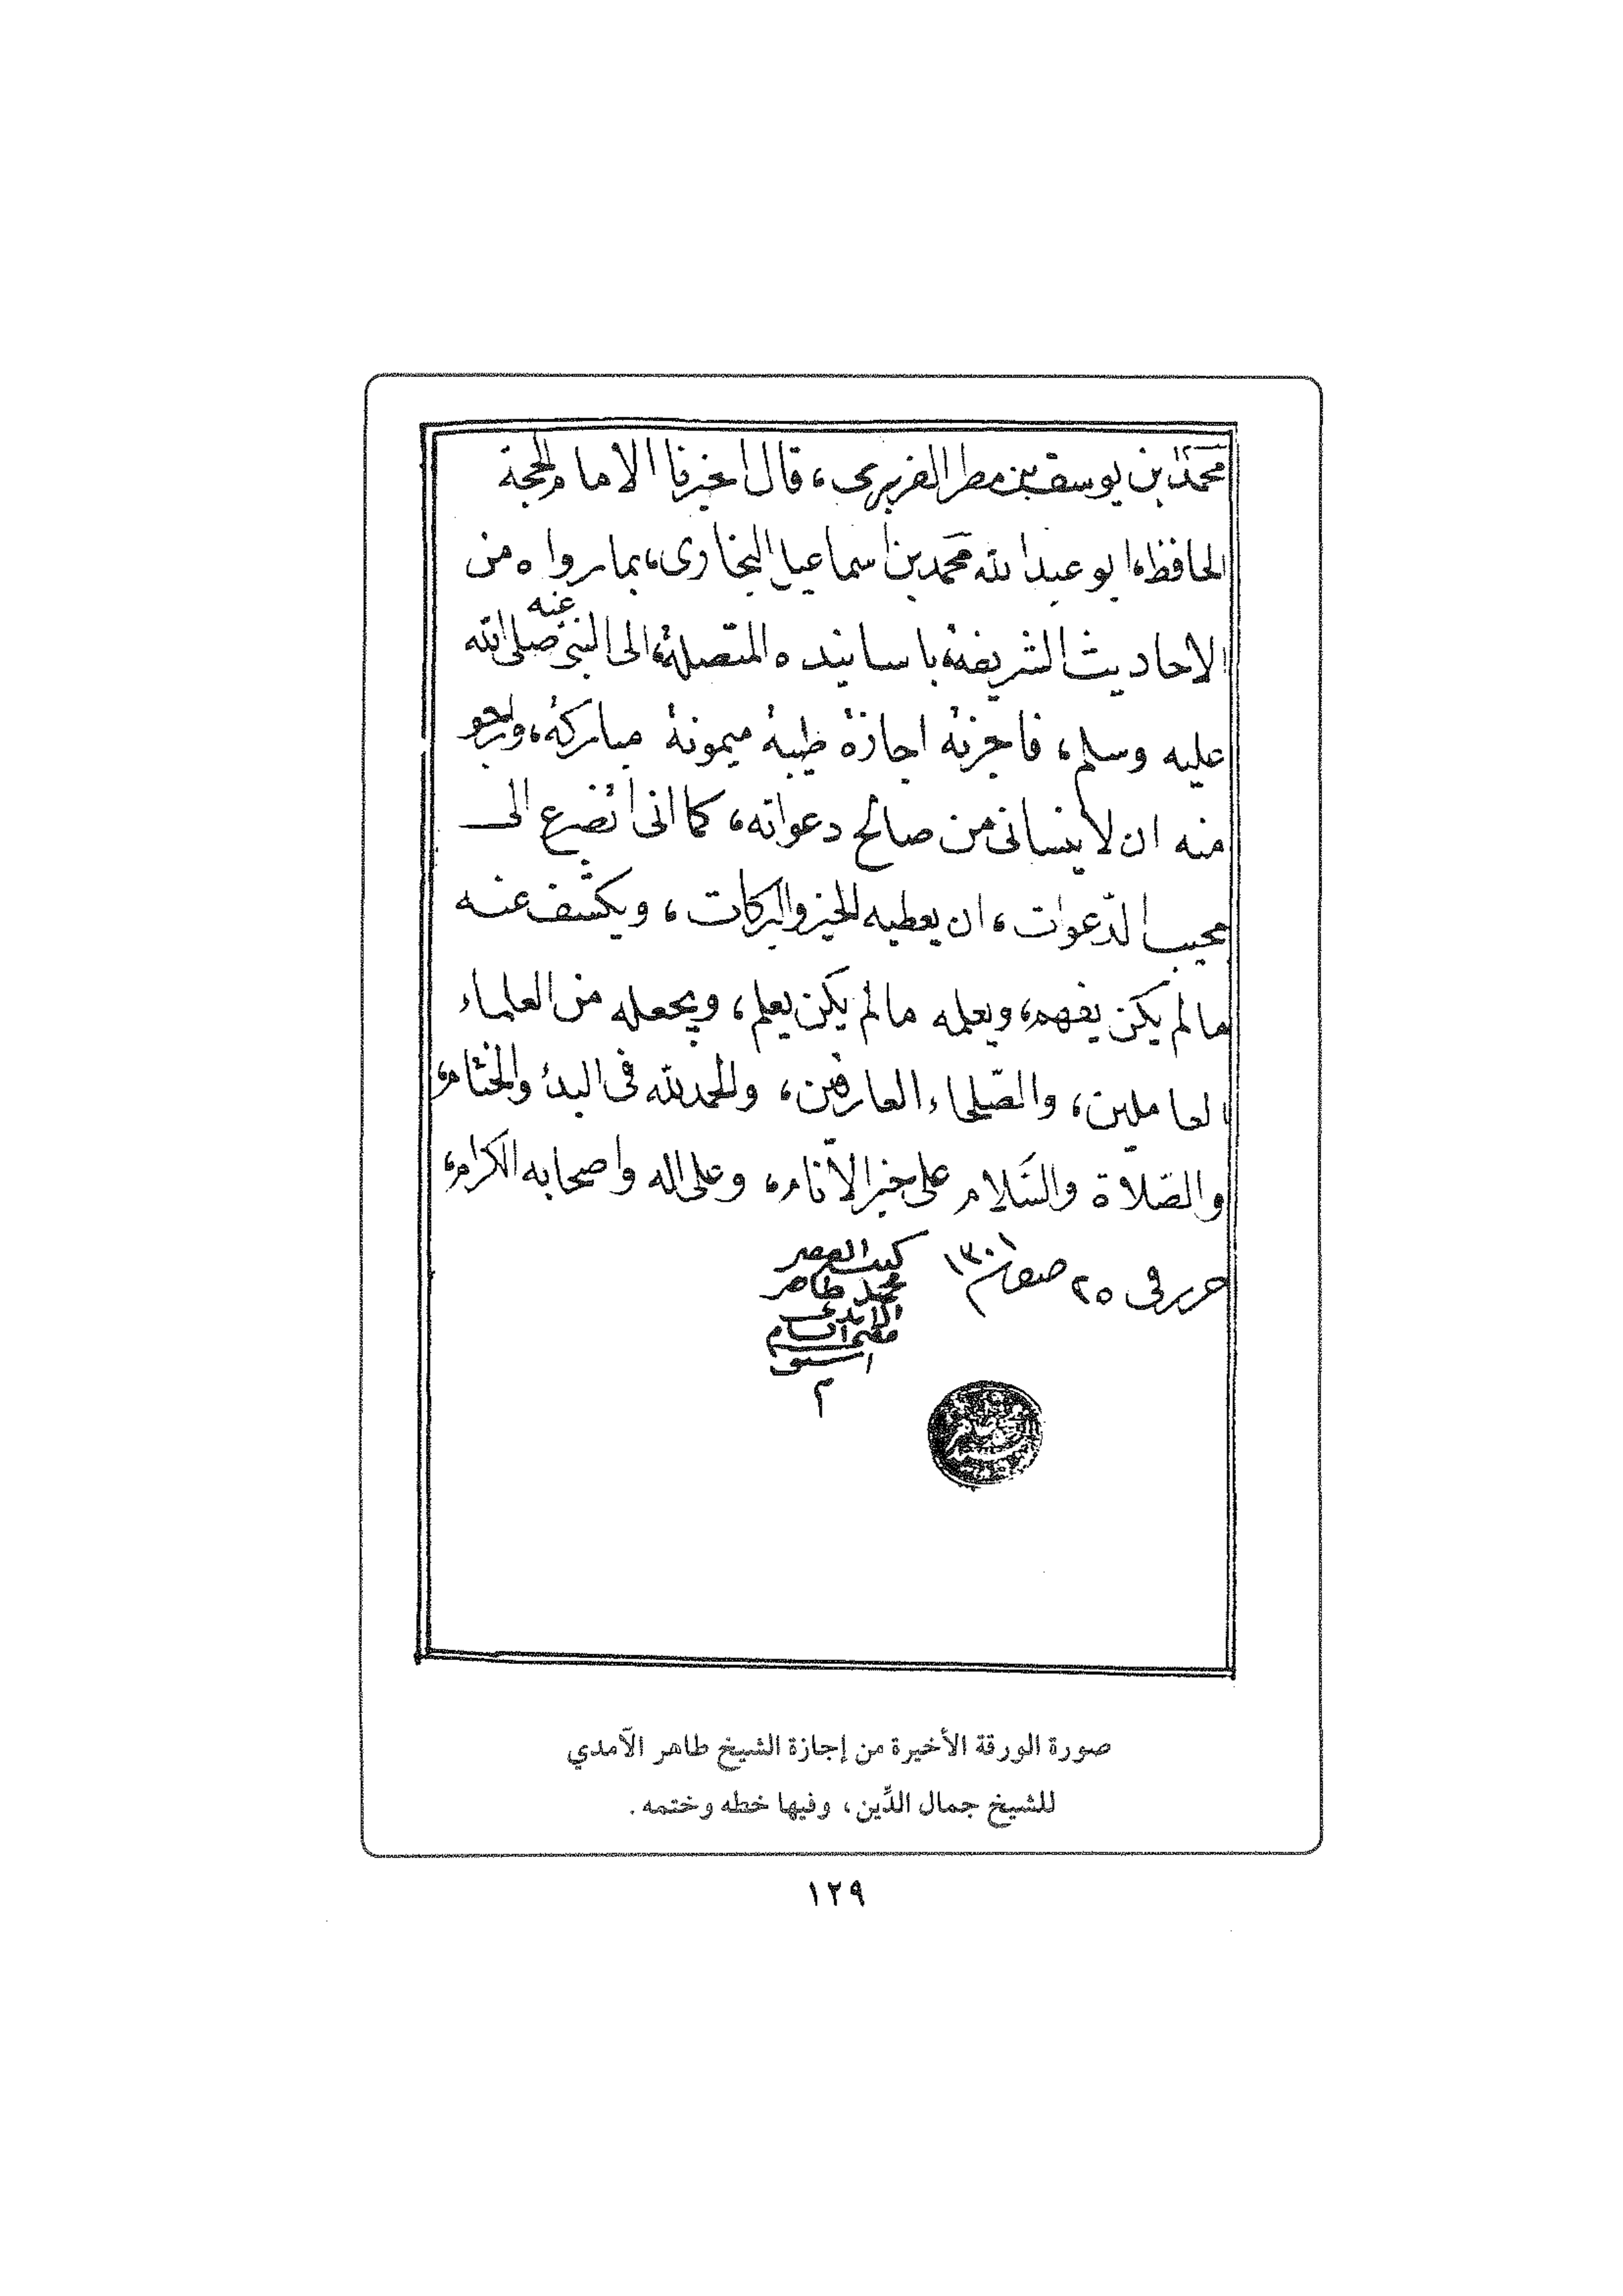 محمد بن يوسف بن مطر الفربري، قال اخبرنا الامام الحجة
الحافظ، ابو عبد الله محمد بن اسماعيل البخارى، بما رواه من
الاحاديث الشريفة، باسانيده المتصلة، الى النبى صلى الله
عنه
عليه وسلم، فاجزته اجازة طيبة ميمونة مباركة، وارجو
منه ان لا ينسانى من صالح دعواته، كما انى اتضرع الى
مجيب الدّعوات، ان يعطيه الخير والبركات، ويكشف عنه
مالم يكن يفهم، ويعلمه مالم يكن يعلم، ويجعله من العلماء
العاملين، والصّلحاء العارفين، والحمد لله فى البدء والختام،
والصّلاة والسَّلام على خير الأنام، وعلى اله واصحابه الكرام،
حرر فى ٢٥ ١٣٠١
محمد طاهر
صورة الورقة الأخيرة من إجازة الشيخ طاهر الآمدي
للشيخ جمال الدِّين، وفيها خطه وختمه.
١٢٩